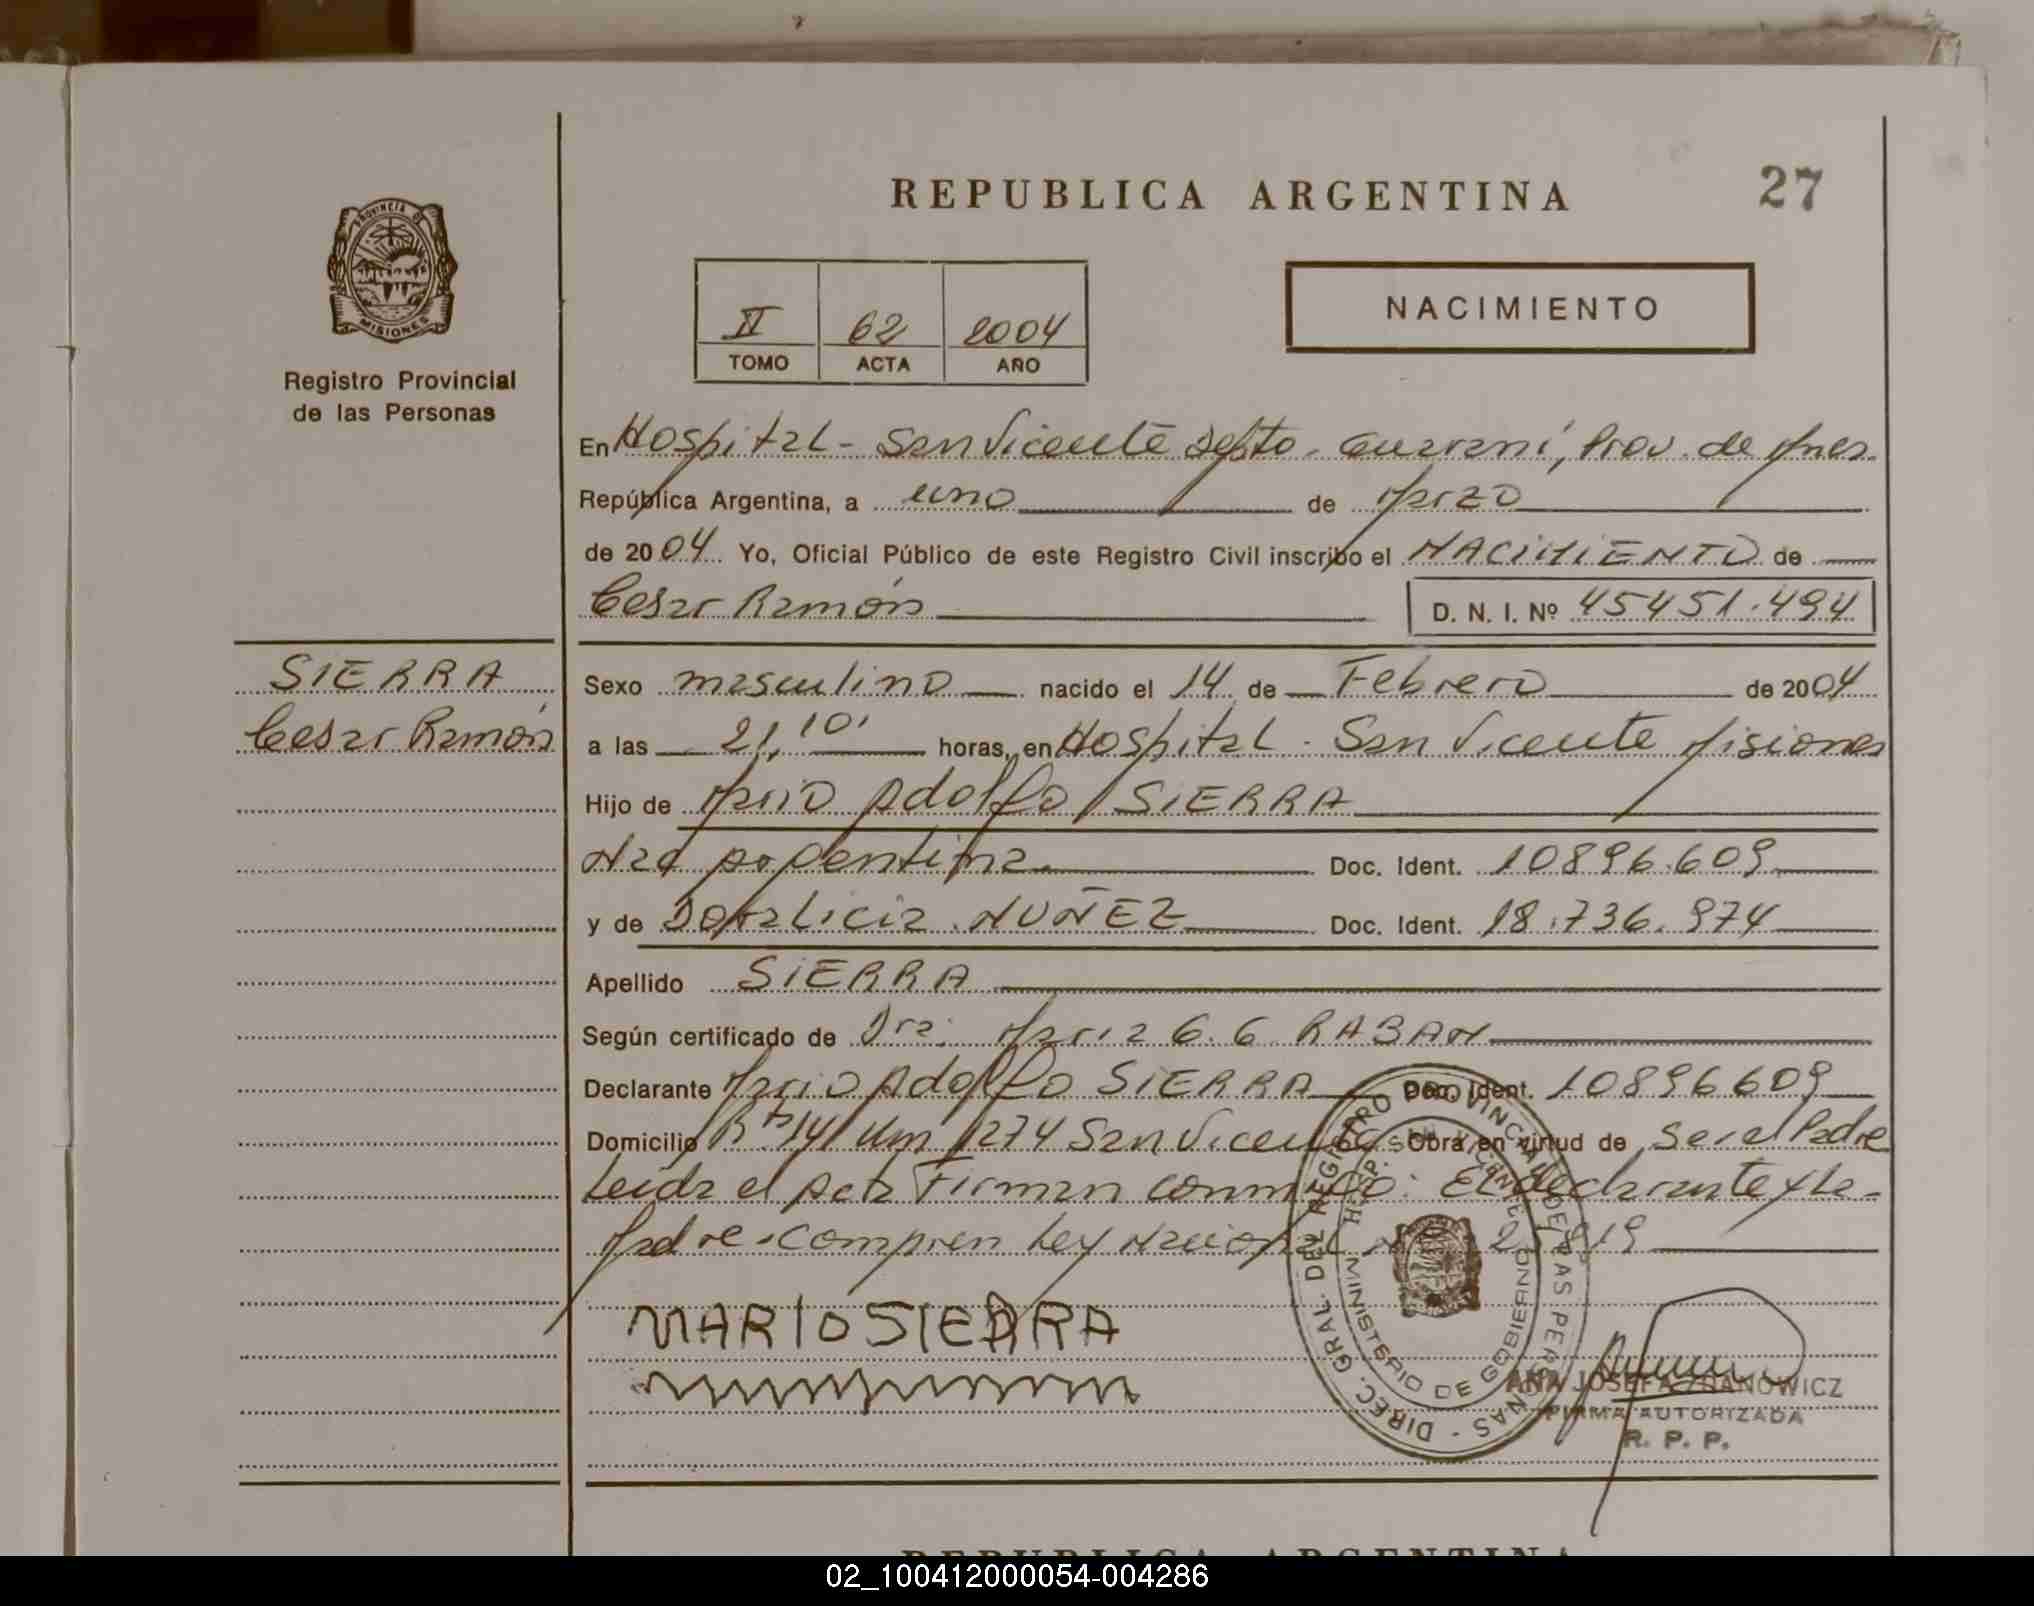 REPUBLICA ARGENTINA
27
PROVINCIA DE
MISIONES
Registro Provincial
de las Personas
II 62 2004
TOMO ACTA AÑO
NACIMIENTO
En Hospital - San Vicente Depto. Guaraní, Prov. de Mnes.
República Argentina, a uno de Marzo
de 2004 Yo, Oficial Público de este Registro Civil inscribo el NACIMIENTO de
Cesar Ramón D. N. I. Nº 45451.494
SIERRA
Cesar Ramón
Sexo masculino nacido el 14 de Febrero de 2004
a las 21,10' horas, en Hospital - San Vicente Misiones
Hijo de Mario Adolfo SIERRA
Nac Argentina. Doc. Ident. 10896.609
y de Doralicia NUÑEZ Doc. Ident. 18.736.974
Apellido SIERRA
Según certificado de Dra. Maria G. G. RABAN
Declarante Mario Adolfo SIERRA Doc. Ident. 10896609
Domicilio Rta 14 Km 1274 San Vicente Obra en virtud de Ser el Padre
Leida el Acta Firman conmigo: El declarante y la
Madre. Compren Ley Nacional Nº
MARIO SIERRA
DIREC. GRAL. DEL REGISTRO PROVINCIAL DE LAS PERSONAS -
MINISTERIO DE GOBIERNO
ANA JOSEFA ZDANOWICZ
FIRMA AUTORIZADA
R. P. P.
REPUBLICA ARGENTINA
02_100412000054-004286